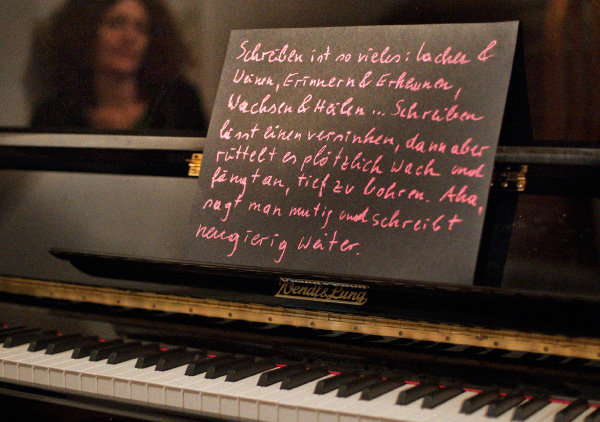 Schreiben ist so vieles: Lachen &
Weinen, Erinnern & Erkennen,
Wachsen & Heilen ... Schreiben
lässt einen versinken, dann aber
rüttelt es plötzlich wach und
fängt an, tief zu bohren. Aha,
sagt man mutig und schreibt
neugierig weiter.
Wendl & Lung